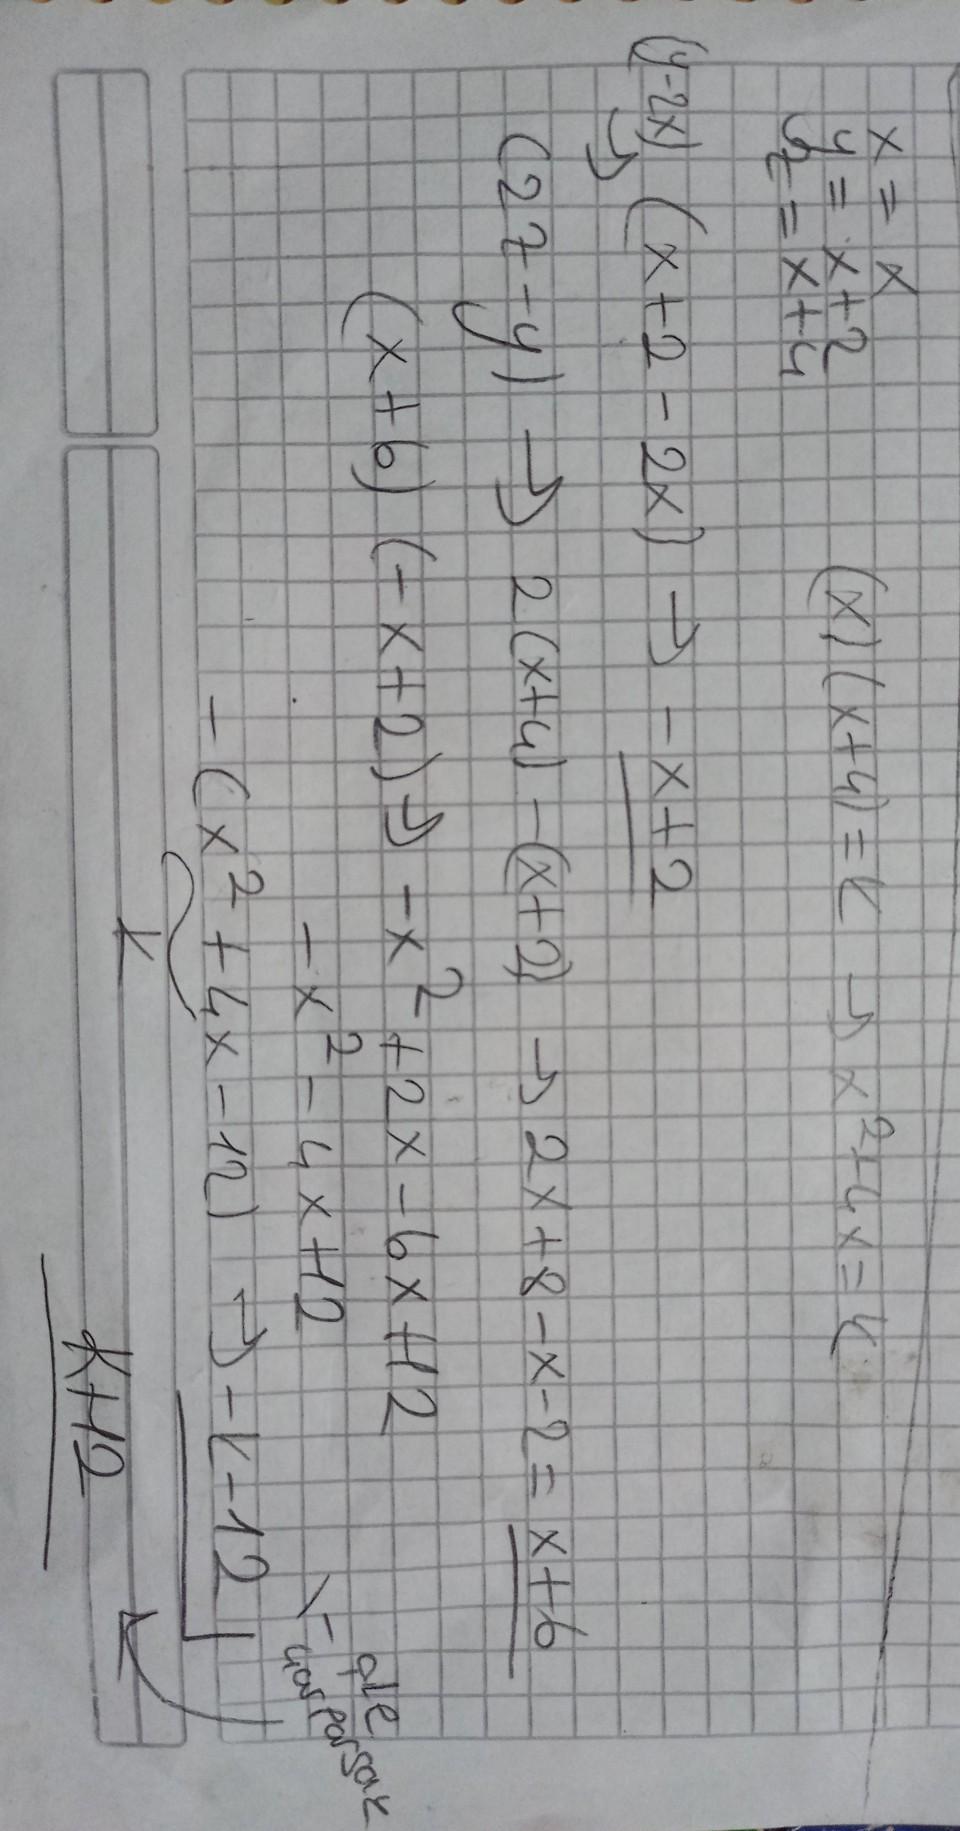 x = x
y = x+2
z = x+4
(x)(x+4) = k → x²+4x = k
(y-2x) → (x+2-2x) → -x+2
(2z-y) → 2(x+4) - (x+2) → 2x+8-x-2 = x+6
(x+6)(-x+2) → -x²+2x-6x+12
-x²-4x+12
-(x²+4x-12) → -k-12
k
- ile
çarparsak
k+12